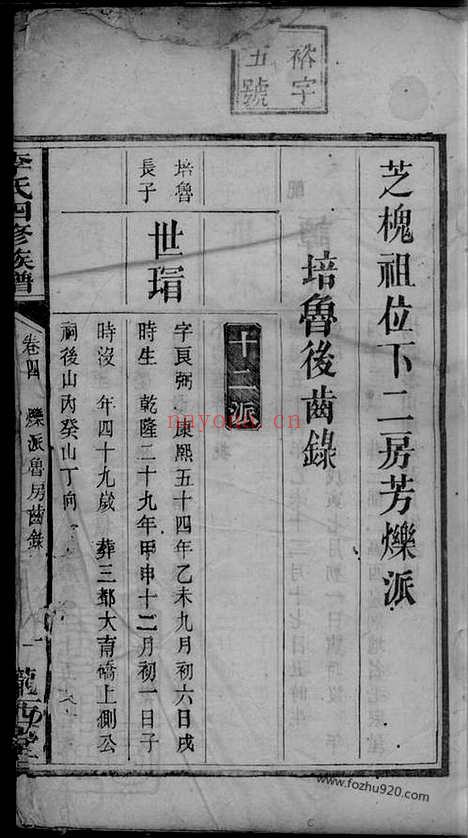 裕字
五號
芝槐祖位下二房芳爍派
培魯後齒錄
十二派
培魯
長子
世瑁
字良弼 康熙五十四年乙未九月初六日戌
時生 乾隆二十九年甲申十二月初一日子
時沒 年四十九歲 葬三都大南橋上側公
祠後山丙癸山丁向
李氏四修族譜
卷四 爍派魯房齒錄
一
隴西堂
nayona.cn
www.fozhu920.com